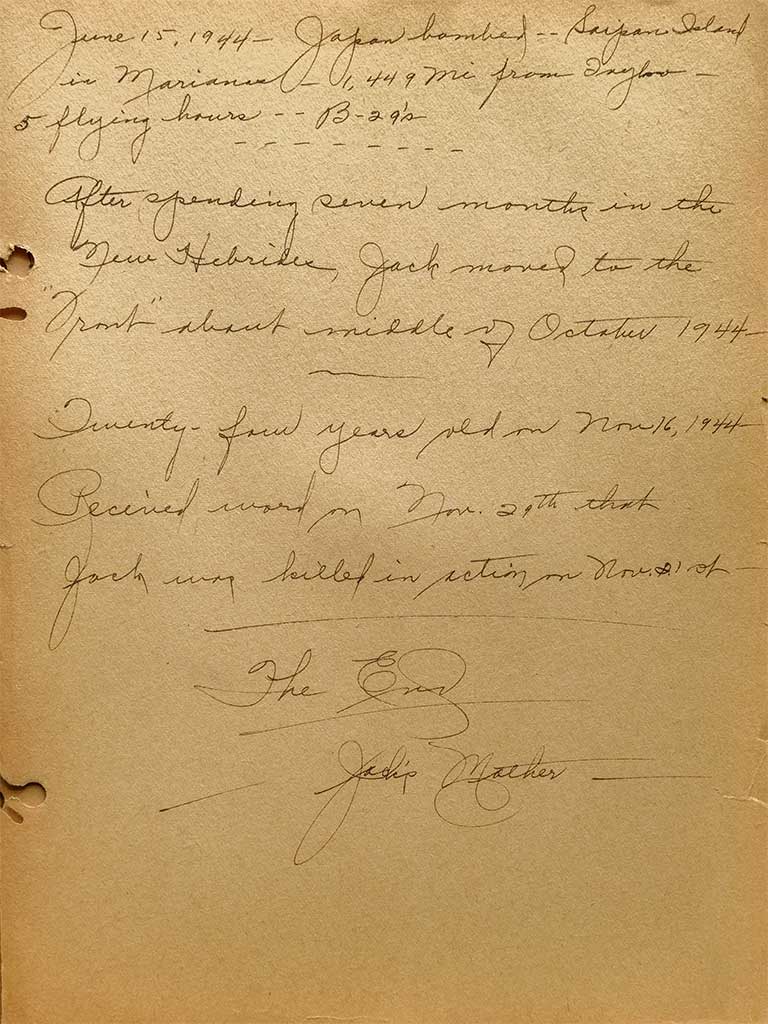 June 15, 1944 - Japan bombed -- Saipan Island
in Marianas - 1,449 Mi from Tokyo -
5 flying hours -- B-29's
- - - - - - - -
After spending seven months in the
New Hebrides, Jack moved to the
"Front" about middle of October 1944 -
Twenty-four years old on Nov 16, 1944 -
Received word on Nov. 29th that
Jack was killed in action on Nov. 21st -
The End
Jack's Mother